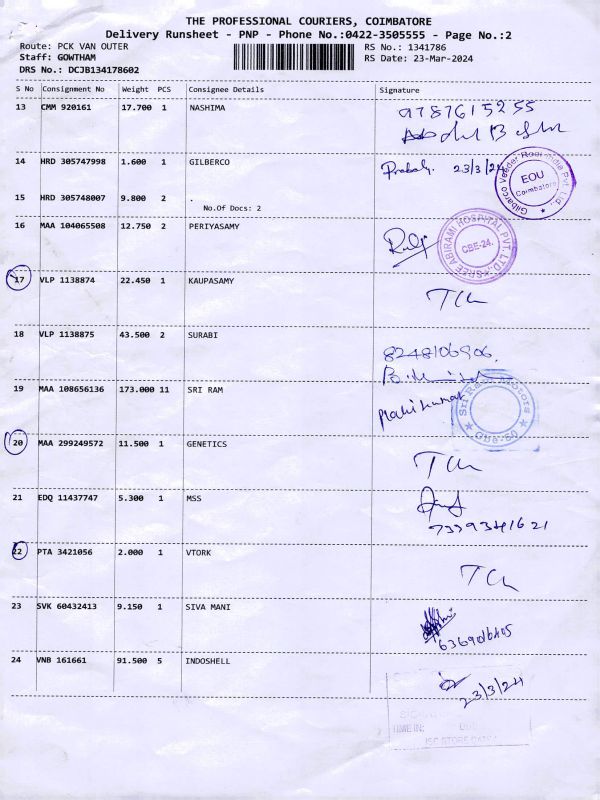 THE PROFESSIONAL COURIERS, COIMBATORE
Delivery Runsheet - PNP - Phone No.:0422-3505555 - Page No.:2
Route: PCK VAN OUTER
RS No.: 1341786
Staff: GOWTHAM
RS Date: 23-Mar-2024
DRS No.: DCJB134178602
S No Consignment No Weight PCS Consignee Details Signature
13 CMM 920161 17.700 1 NASHIMA 9787615255
14 HRD 305747998 1.600 1 GILBERCO 23/3/24
Gilbarco Veeder Root India Pvt. Ltd. EOU Coimbatore
15 HRD 305748007 9.800 2 .
No.Of Docs: 2
16 MAA 104065508 12.750 2 PERIYASAMY
SREE ABIRAMI HOSPITAL PVT. LTD. CBE-24.
17 VLP 1138874 22.450 1 KAUPASAMY
18 VLP 1138875 43.500 2 SURABI 8248106906.
19 MAA 108656136 173.000 11 SRI RAM Manikumar
Sri Ram Motors
20 MAA 299249572 11.500 1 GENETICS
21 EDQ 11437747 5.300 1 MSS
7339341621
22 PTA 3421056 2.000 1 VTORK
23 SVK 60432413 9.150 1 SIVA MANI
24 VNB 161661 91.500 5 INDOSHELL 23/3/24
TIME IN: